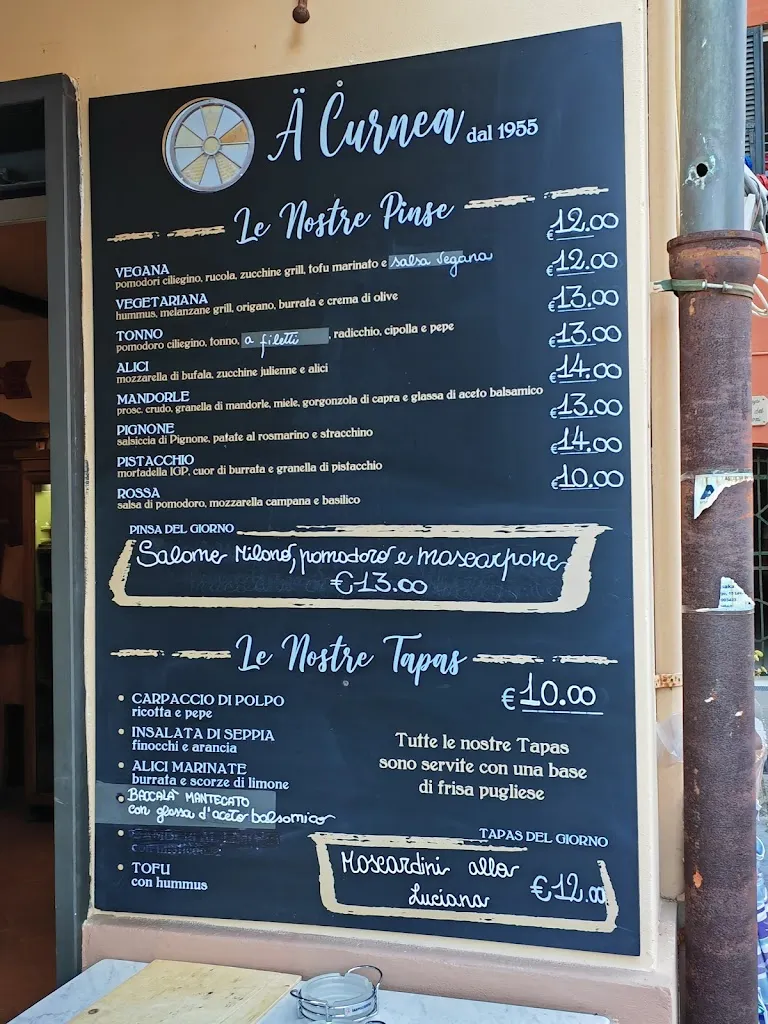 Ä Ćurnea dal 1955
Le Nostre Pinse
VEGANA €12.00
pomodori ciliegino, rucola, zucchine grill, tofu marinato e salsa vegana
VEGETARIANA €12.00
hummus, melanzane grill, origano, burrata e crema di olive
TONNO €13.00
pomodoro ciliegino, tonno, a filetti, radicchio, cipolla e pepe
ALICI €13.00
mozzarella di bufala, zucchine julienne e alici
MANDORLE €14.00
prosc. crudo, granella di mandorle, miele, gorgonzola di capra e glassa di aceto balsamico
PIGNONE €13.00
salsiccia di Pignone, patate al rosmarino e stracchino
PISTACCHIO €14.00
mortadella IGP, cuor di burrata e granella di pistacchio
ROSSA €10.00
salsa di pomodoro, mozzarella campana e basilico
PINSA DEL GIORNO
Salame Milano, pomodoro e mascarpone
€13.00
Le Nostre Tapas
€10.00
• CARPACCIO DI POLPO
ricotta e pepe
• INSALATA DI SEPPIA
finocchi e arancia
• ALICI MARINATE
burrata e scorze di limone
• BACCALA' MANTECATO
con glassa d'aceto balsamico
• TOFU
con hummus
Tutte le nostre Tapas
sono servite con una base
di frisa pugliese
TAPAS DEL GIORNO
Moscardini alla
Luciana €12.00